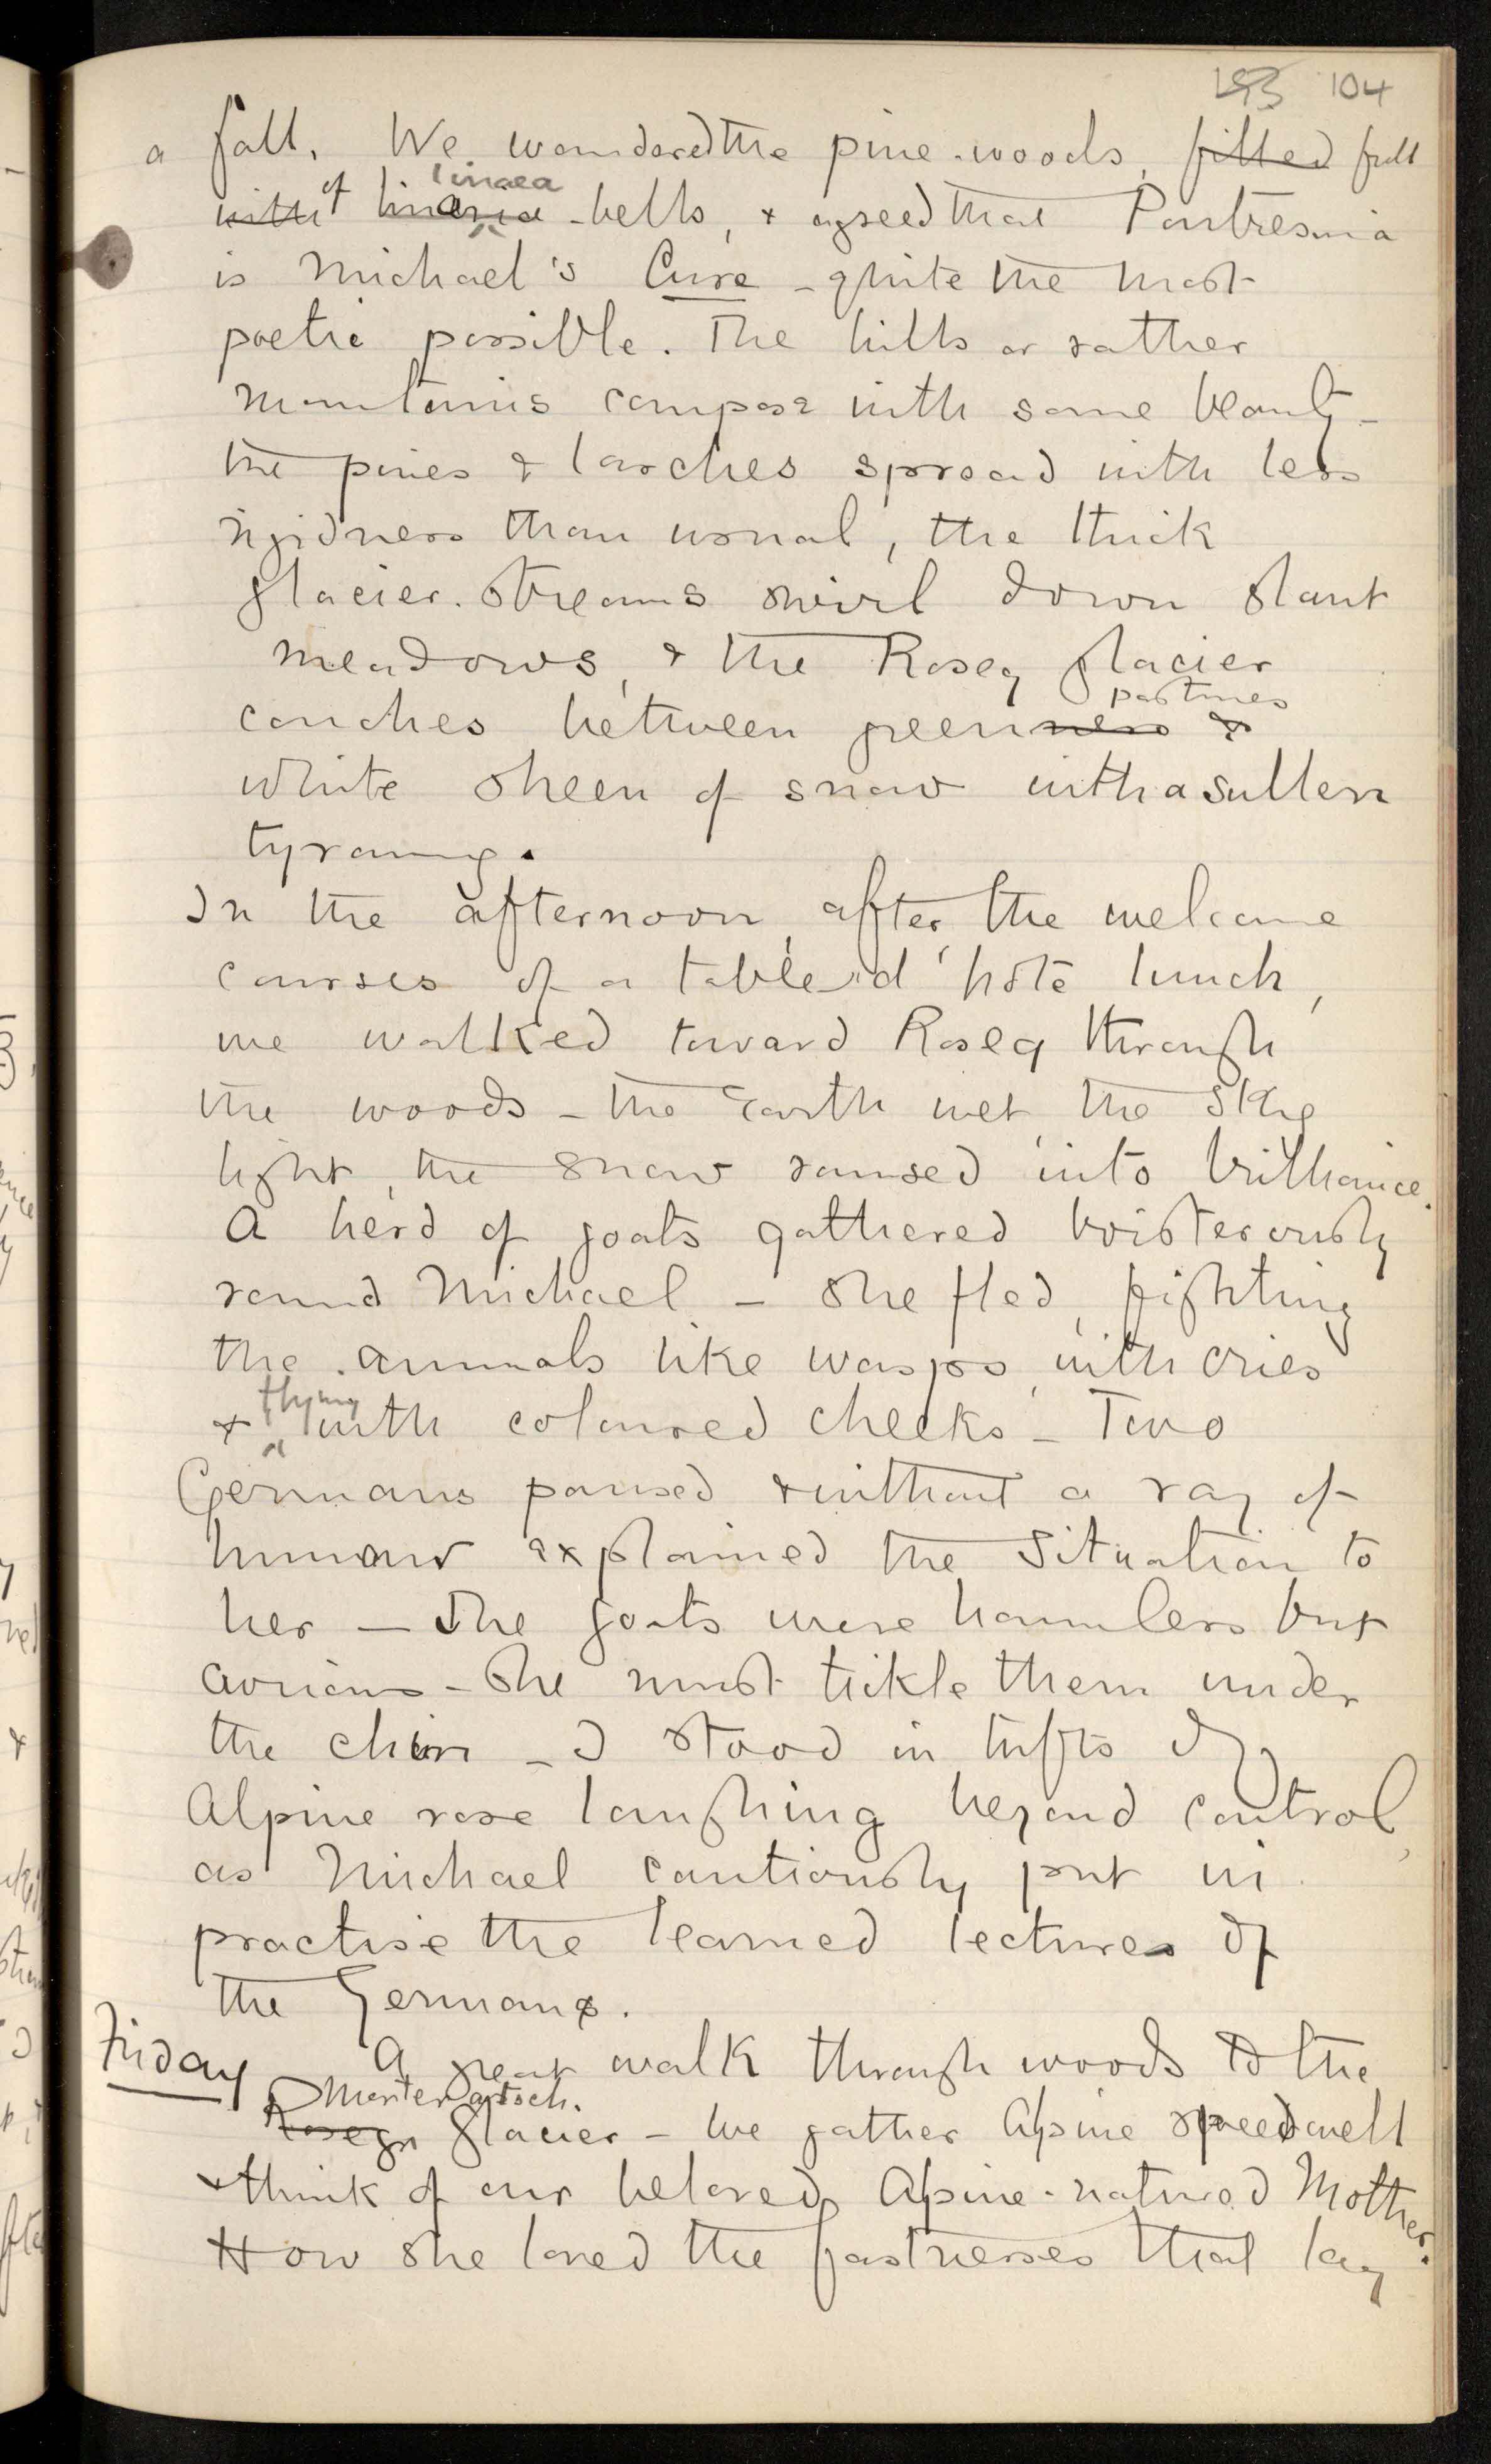 193 104
a fall. We wandered the pine-woods, filled full
with of linaria linaea -bells, & agreed that Pontresina
is Michael's Cure - quite the most
poetic possible. The hills or rather
mountains compose with some beauty -
the pines & larches spread with less
rigidness than usual, the thick
glacier-streams swirl down slant
meadows, & the Roseg glacier
couches between greenness pastures &
white sheen of snow with a sullen
tyranny.
In the afternoon, after the welcome
courses of a table d'hôte lunch,
we walked toward Roseg through
the woods - the earth wet, the sky
light, the snow roused into brilliance.
A herd of goats gathered boisterously
round Michael - she fled, fighting
the animals like wasps, with cries
& flying with coloured cheeks - Two
Germans paused & without a ray of
humour explained the situation to
her - The goats were harmless but
curious - She must tickle them under
the chin - I stood in tufts of
Alpine rose laughing beyond control,
as Michael cautiously put in
practise the learned lectures of
the Germans.
Friday A great walk through woods to the
Roseg Morteratsch. Glacier - We gather Alpine speedwell
& think of our beloved, Alpine-natured Mother.
How she loved the fastnesses that lay